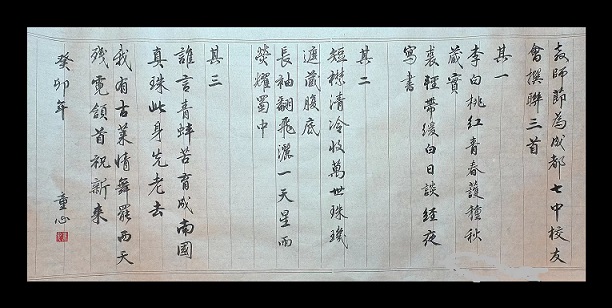 教師節為成都七中校友
會撰聯三首
其一
李白桃紅青春護種秋
歲實
裘輕帶緩白日談經夜
寫書
其二
短襟清冷收萬世珠璣
遮藏腹底
長袖翻飛灑一天星雨
熒耀蜀中
其三
誰言青蚌苦育成南國
真珠此身先老去
我有古萊情舞罷西天
殘霓頷首祝新來
癸卯年
童心